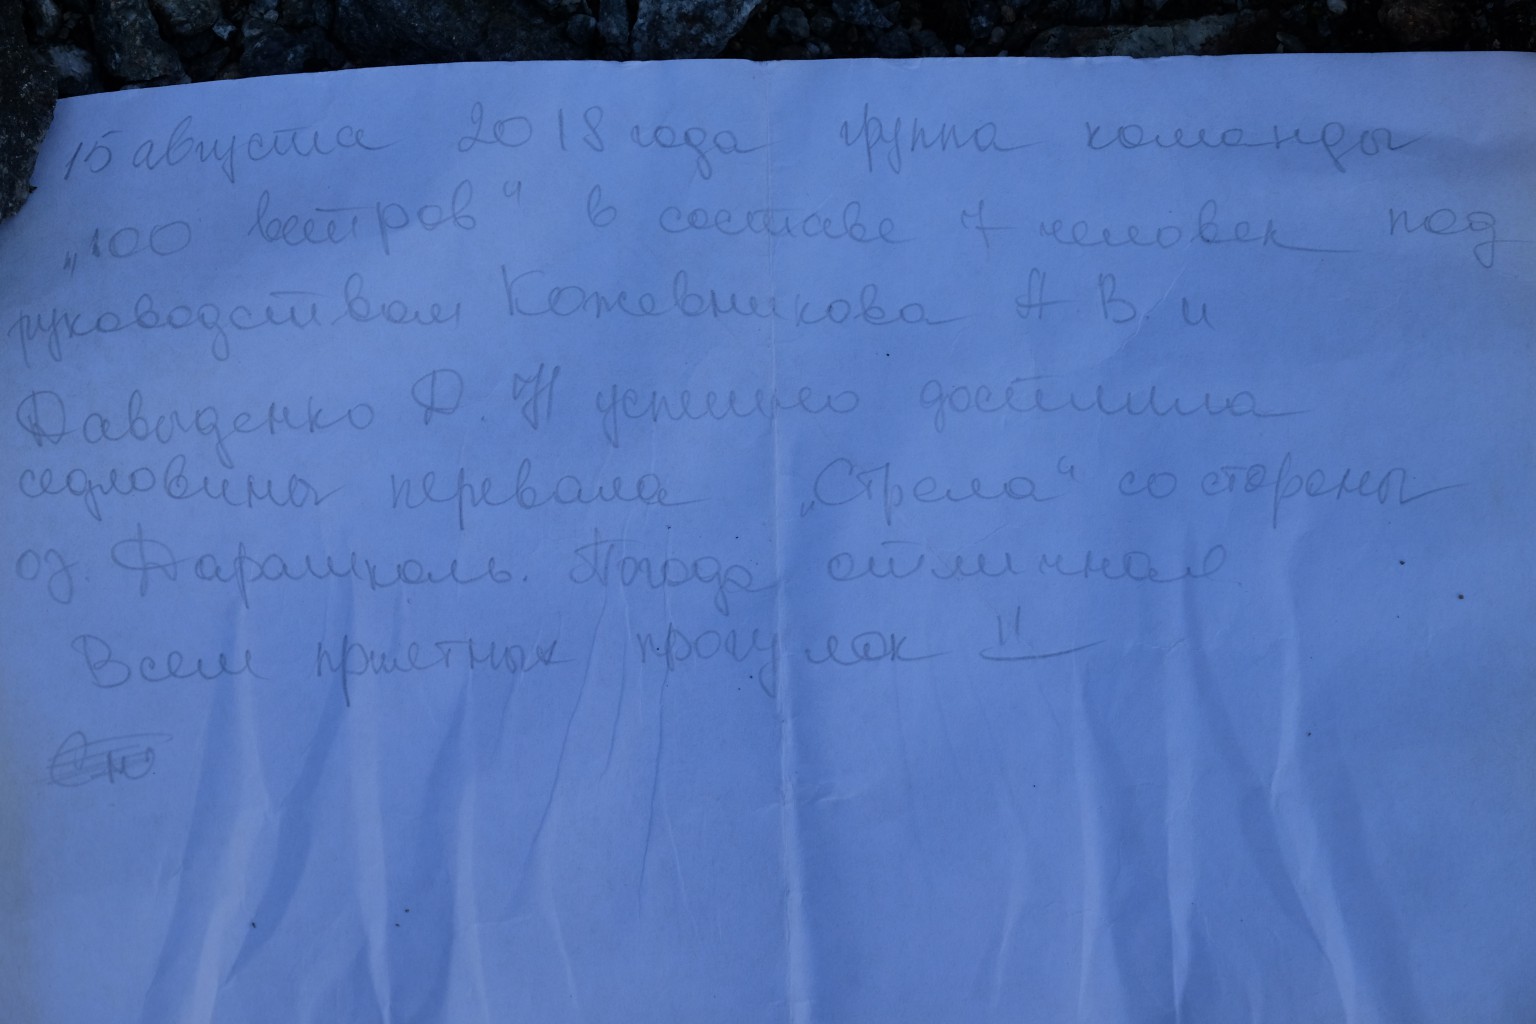 15 августа 2018 года группа команды
„100 ветров“ в составе 7 человек под
руководством Кожевникова А.В. и
Давыденко Д.Н успешно достигла
седловины перевала „Стрела“ со стороны
оз. Дарашколь. Погода отличная
Всем приятных прогулок !!